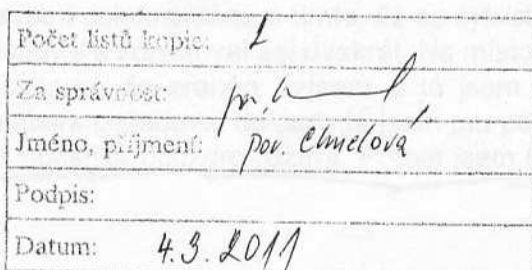 Počet listů kopie: 1
Za správnost:
Jméno, příjmení: por. Chmelová
Podpis:
Datum: 4.3.2011